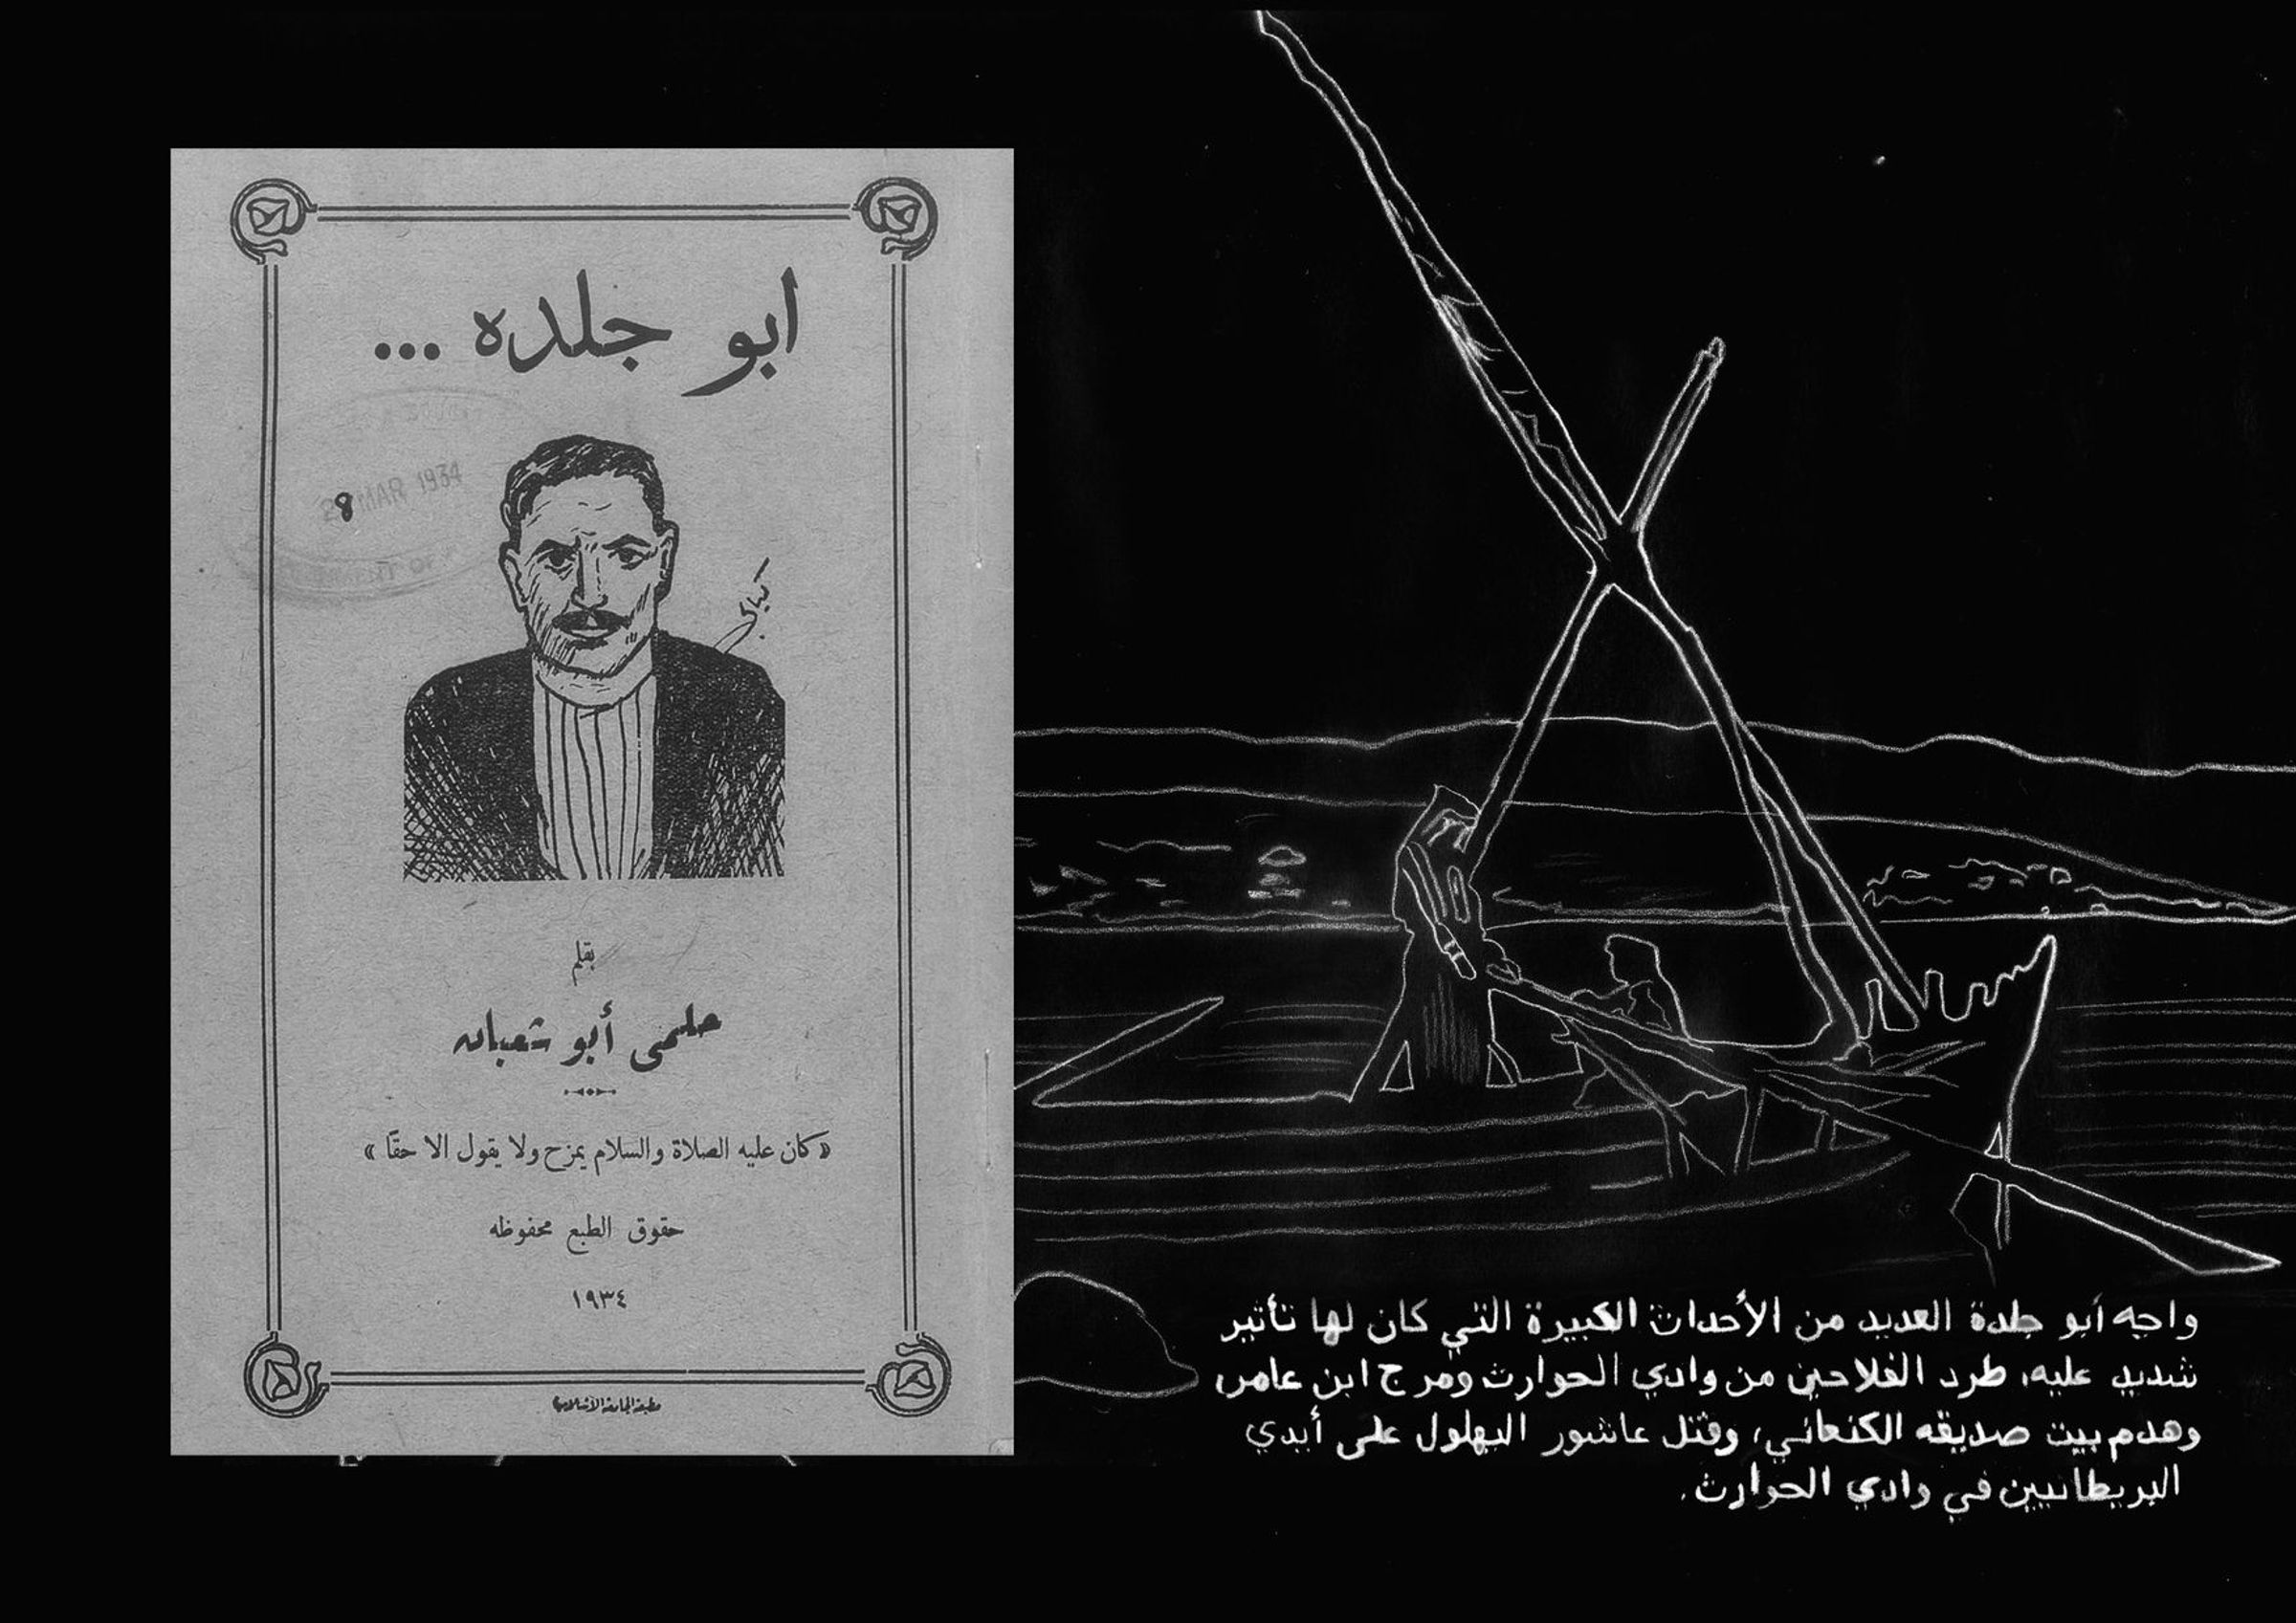 ابو جلده ...
28 MAR 1934
بقلم
حلمي أبو شعبان
«كان عليه الصلاة والسلام يمزح ولا يقول الا حقًا»
حقوق الطبع محفوظه
١٩٣٤
مطبعة الجامعة الاسلامية
واجه أبو جلدة العديد من الأحداث الكبيرة التي كان لها تأثير
شديد عليه، طرد الفلاحين من وادي الحوارث ومرج ابن عامر،
وهدم بيت صديقه الكنعاني، وقتل عاشور البهلول على أيدي
البريطانيين في وادي الحوارث.